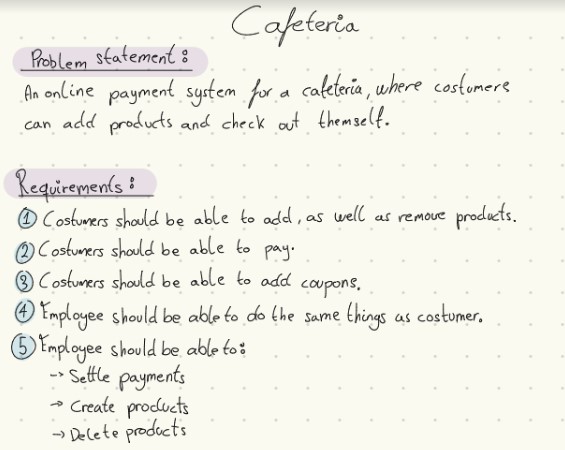 Cafeteria
Problem statement:
An online payment system for a cafeteria, where costumers
can add products and check out themself.
Requirements:
1 Costumers should be able to add, as well as remove products.
2 Costumers should be able to pay.
3 Costumers should be able to add coupons.
4 Employee should be able to do the same things as costumer.
5 Employee should be able to:
→ Settle payments
→ Create products
→ Delete products